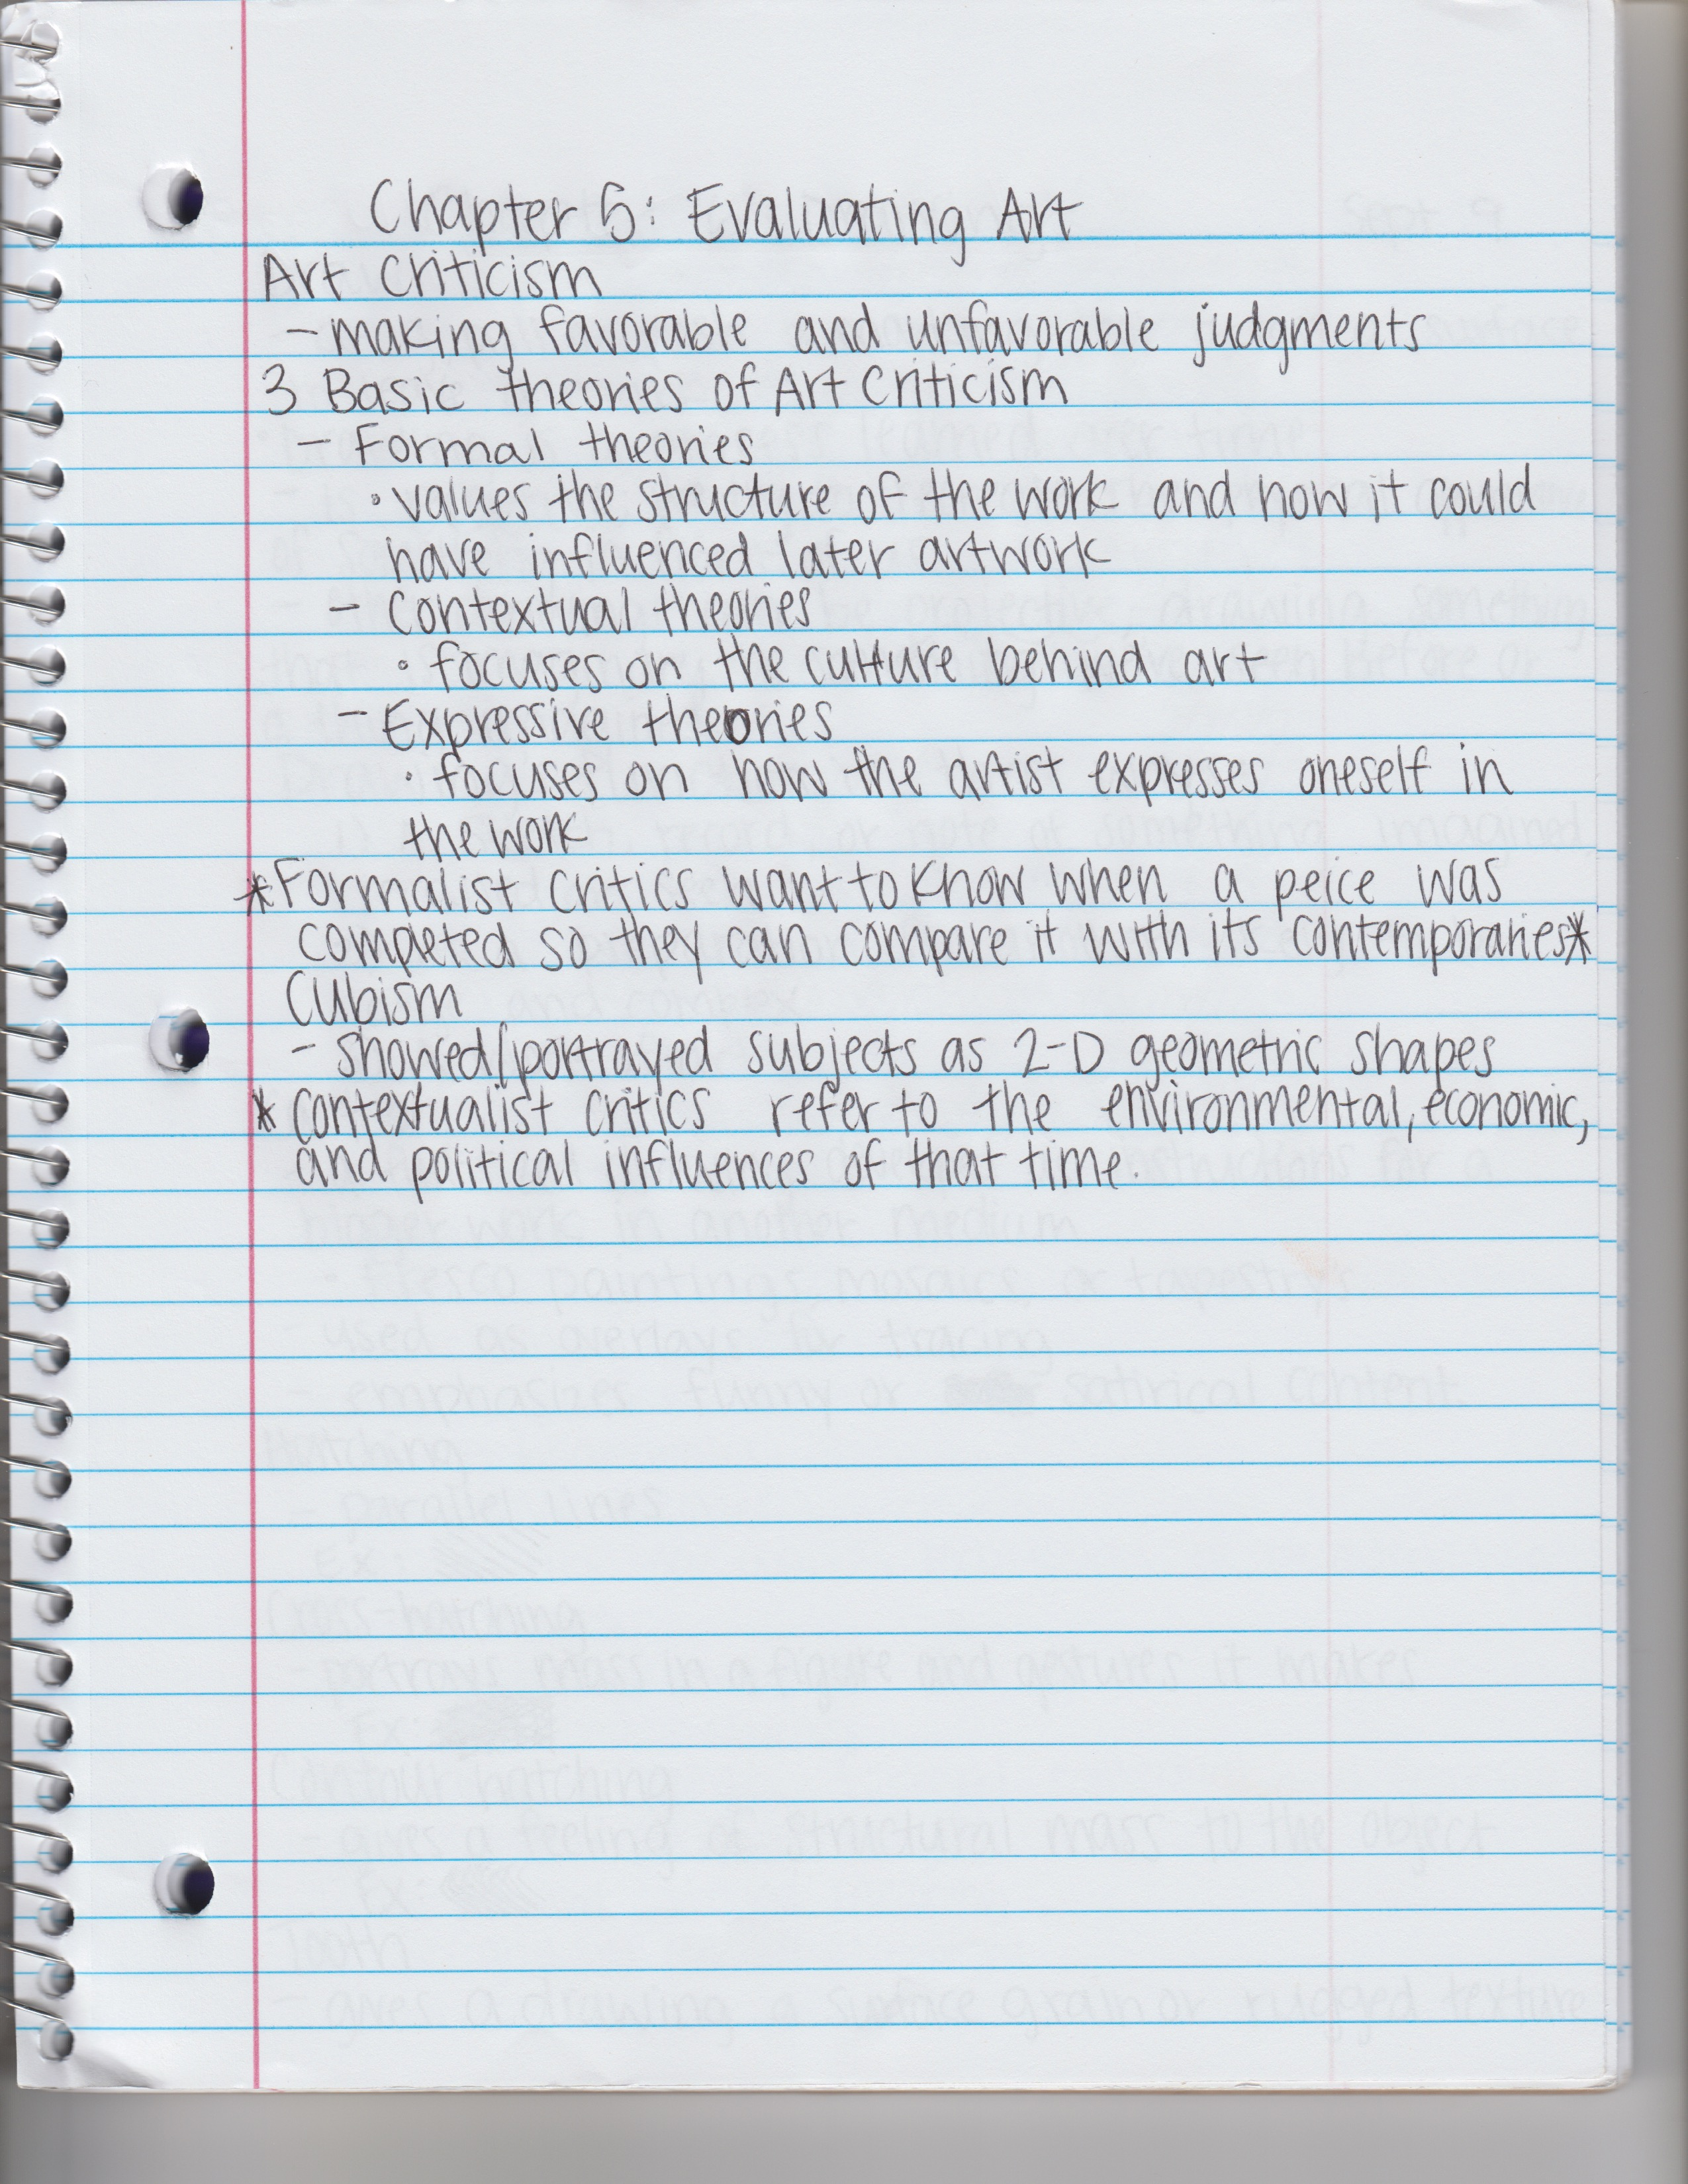 Chapter 5: Evaluating Art
Art Criticism
- making favorable and unfavorable judgments
3 Basic theories of Art Criticism
- Formal theories
• values the structure of the work and how it could
have influenced later artwork
- Contextual theories
• focuses on the culture behind art
- Expressive theories
• focuses on how the artist expresses oneself in
the work
*Formalist critics want to know when a peice was
completed so they can compare it with its contemporaries*
Cubism
- showed/portrayed subjects as 2-D geometric shapes
* contextualist critics refer to the environmental, economic,
and political influences of that time.